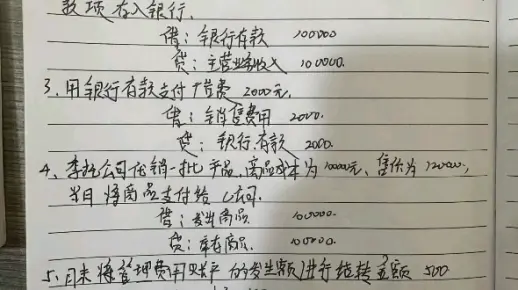 款项存入银行.
借: 银行存款 100000
贷: 主营业务收入 100000.
3、用银行存款支付广告费 2000元.
借: 销售费用 2000.
贷: 银行存款 2000.
4、委托公司代销一批产品,商品成本为100000元、售价为120000,
当日将商品支付给C公司.
借: 发出商品 100000.
贷: 库存商品. 100000.
5、月末将管理费用账户的发生额进行结转金额 500